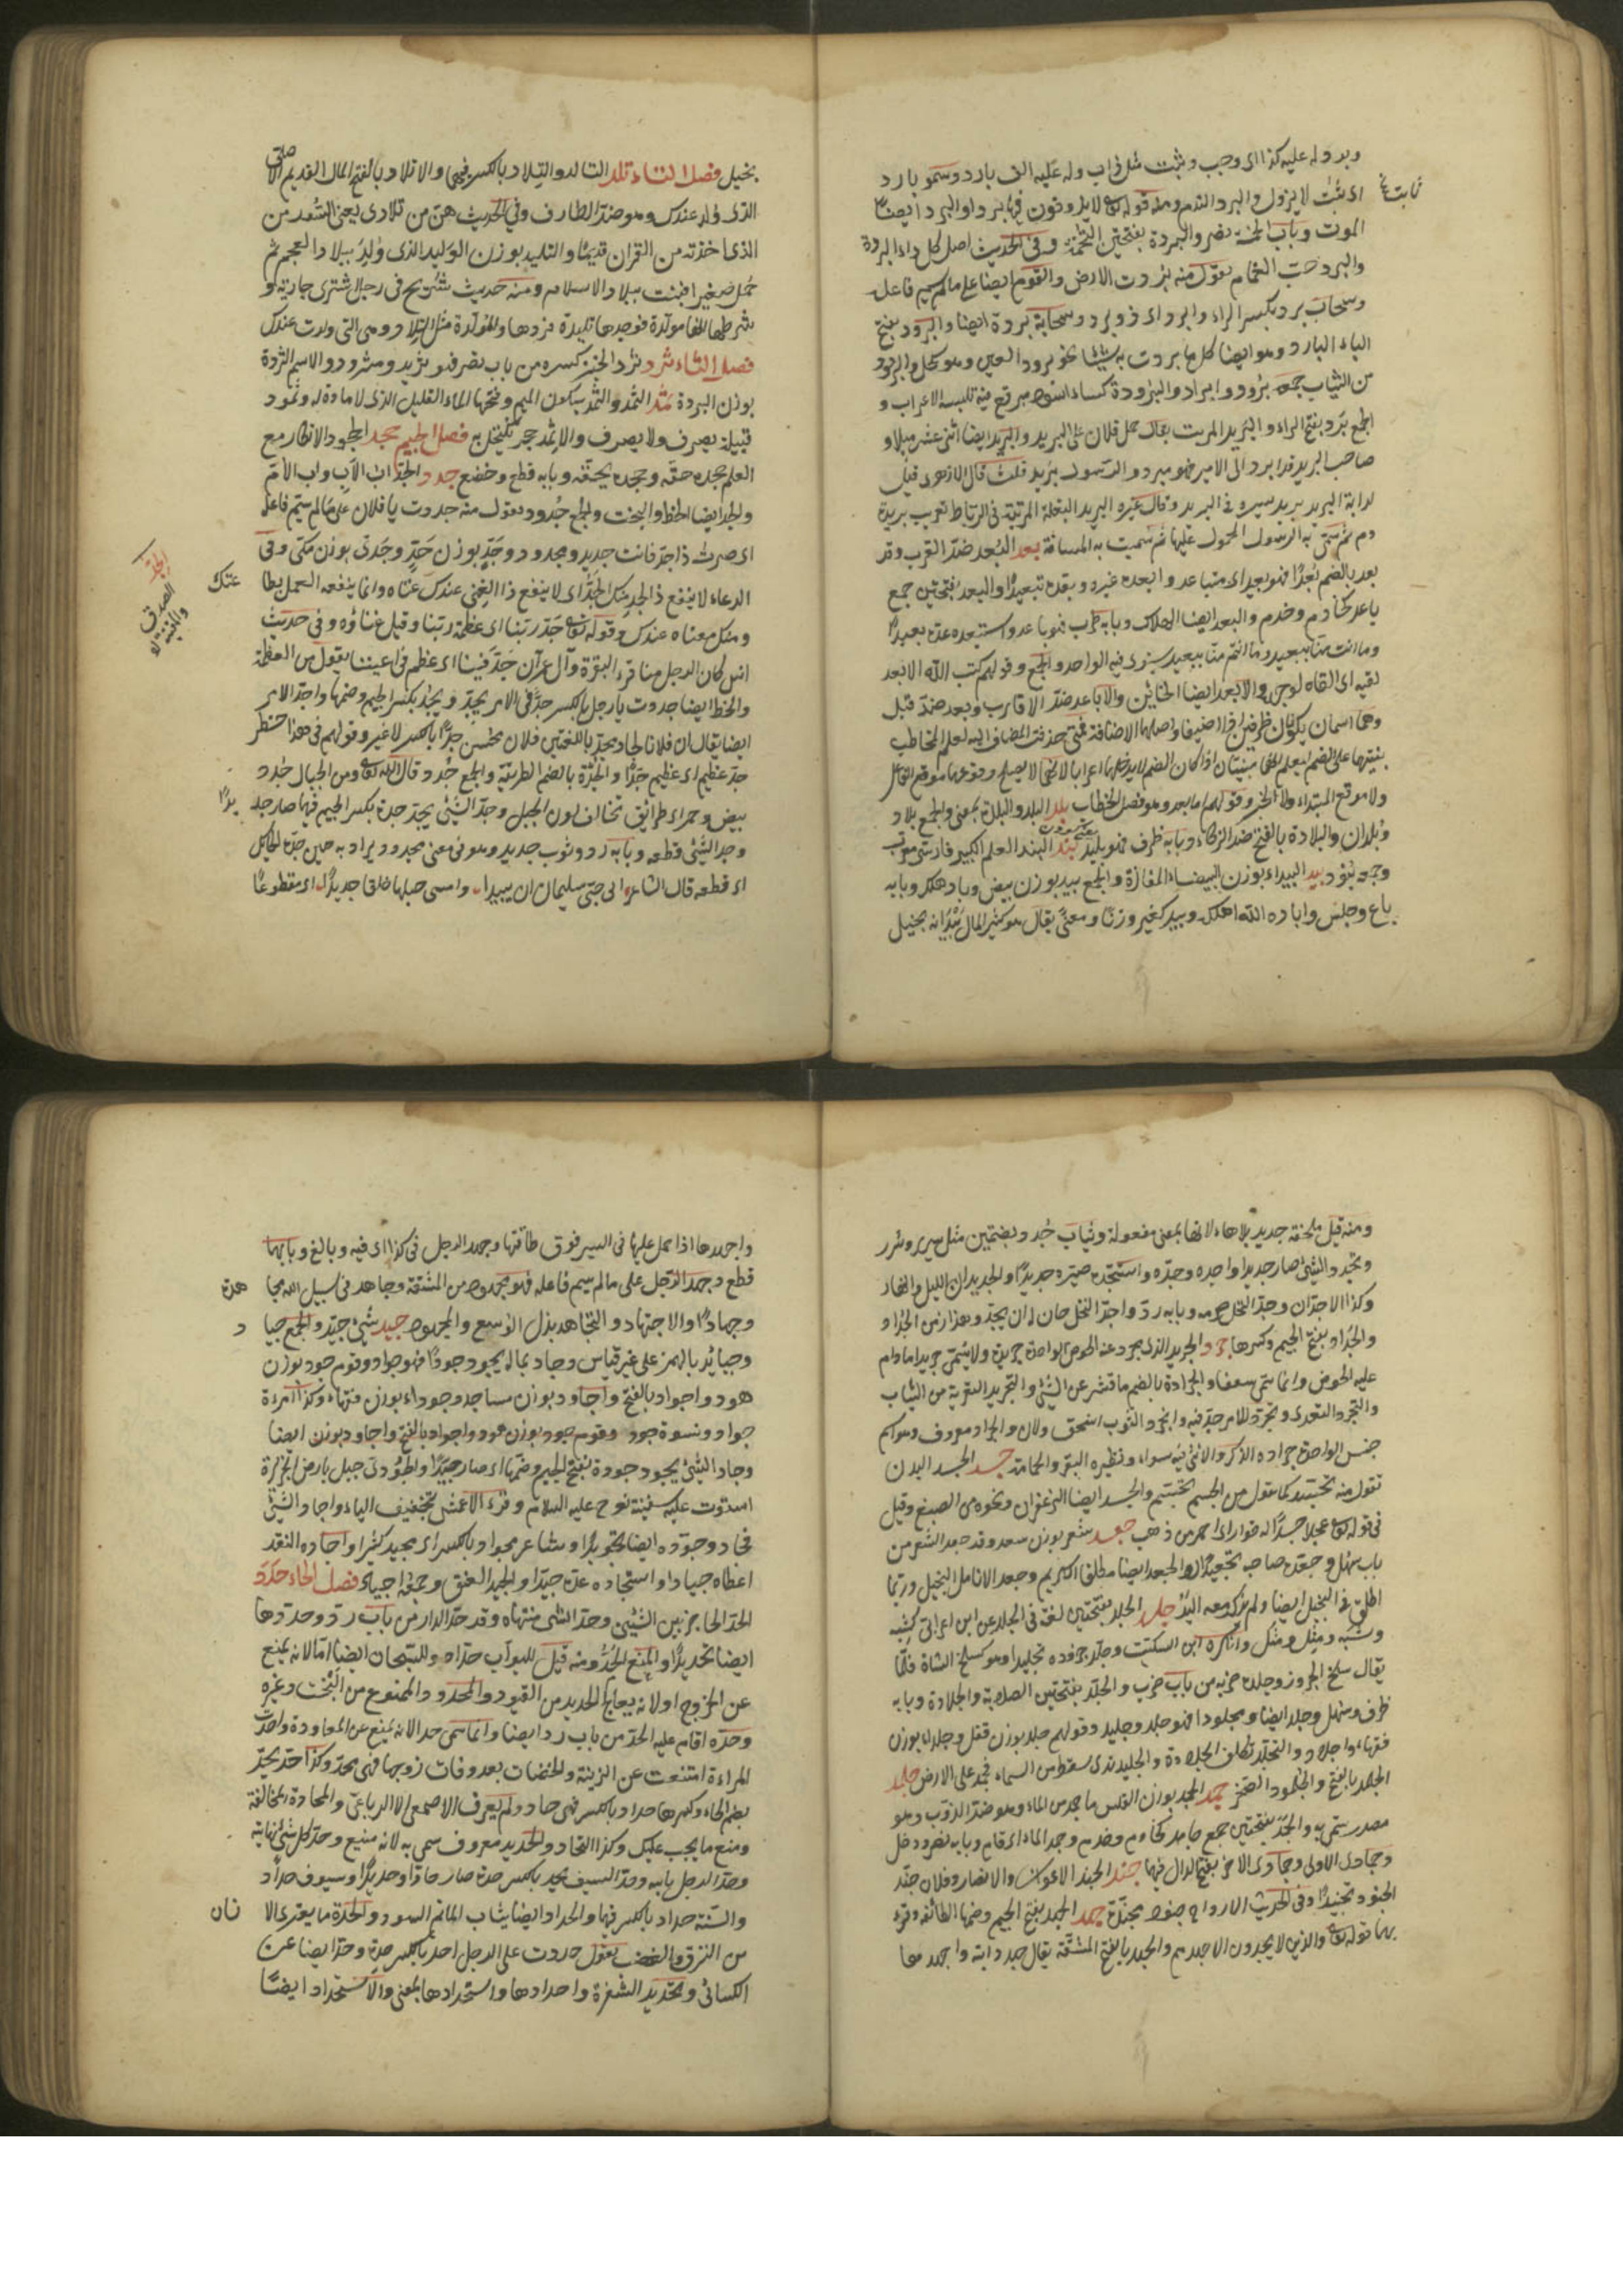 وبرد له عليه كذا اى وجب وثبت مثل ذاب وله عليه الف بارد وسموم بارد
اى ثابت لا يزول والبرد النوم ومنه قوله تعالى لا يذوقون فيها بردا والبرد ايضا
الموت وباب الخمسة نصر والبردة بفتحتين التخمة وفى الحديث اصل كل داء البردة
والبرد حب الغمام تقول منه بردت الارض والقوم ايضا على ما لم يسم فاعله
وسحاب برد بكسر الراء وابرد اى ذو برد وسحابة بردة ايضا والبرود بفتح
الباء البارد وهو ايضا كل ما بردت به شيئا نحو برود العين وهو كحل والبرد
من الثياب جمعه برود وابراد والبردة كساء اسود مربع فيه تلبسه الاعراب و
الجمع برد بفتح الراء والبريد المرتب يقال حمل فلان على البريد والبريد ايضا اثنى عشر ميلا و
صاحب البريد قد ابرد الى الامير فهو مبرد والرسول بريد قلت قال الازهرى قيل
لدابة البريد بريد لسيره فى البريد وقال غيره البريد البغلة المرتبة فى الرباط تعريب بريده
دم ثم سمى به الرسول المحمول عليها ثم سميت به المسافة بعد البعد ضد القرب وقد
بعد بالضم بعدا فهو بعيد اى متباعد وابعده غيره وبعده تبعيدا والبعد بفتحتين جمع
باعد كخادم وخدم والبعد ايضا الهلاك وبابه طرب فهو باعد واستبعده عده بعيدا
وما انت منا ببعيد وما انتم منا ببعيد يستوى فيه الواحد والجمع وقولهم كب الله الابعد
لفيه اى القاه لوجهه والابعد ايضا الخائن والاباعد ضد الاقارب وبعد ضد قبل
وهما اسمان يكونان ظرفين اذا اضيفا واصلهما الاضافة فمتى حذفت المضاف اليه لعلم المخاطب
بنيتهما على الضم ليعلم انهما مبنيان اذ كان الضم لا يدخلهما اعرابا لانهما لا يصلح وقوعهما موقع الفاعل
ولا موقع المبتداء ولا الخبر وقولهم اما بعد وهو فصل الخطاب بلد البلد والبلدة بمعنى والجمع بلاد
وبلدان والبلادة بالفتح ضد الذكاء وبابه ظرف فهو بليد بند البند العلم الكبير فارسى معرب
وجمعه بنود بيد البيداء بوزن البيضاء المفازة والجمع بيد بوزن بيض وباد هلك وبابه
باع وجلس واباده الله اهلكه وبيد كغير وزنا ومعنى يقال هو كثير المال بيد انه بخيل
بخيل فصل التاء تلد التالد والتلاد بالكسر فيهما والاتلاد بالفتح المال القديم الاصلى
الذى ولد عندك وهو ضد الطارف وفى الحديث هن من تلادى يعنى السور من
الذى اخذته من القران قديما والتليد بوزن الوليد الذى ولد ببلاد العجم ثم
حمل صغيرا فنبت ببلاد الاسلام ومنه حديث شريح فى رجل اشترى جارية و
شرط انها مولدة فوجدها تليدة فردها والمولدة مثل التلاد وهى التى ولدت عندك
فصل الثاء ثرد ثرد الخبز كسره من باب نصر فهو ثريد ومثرود والاسم الثردة
بوزن البردة ثمد الثمد والثمد بسكون الميم وفتحها الماء القليل الذى لا مادة له وثمود
قبيلة يصرف ولا يصرف والاثمد حجر يكتحل به فصل الجيم جحد الجحود الانكار مع
العلم جحده حقه وجحده بحقه وبابه قطع وخضع جدد الجد اب الاب واب الام
والجد ايضا الحظ والبخت والجمع جدود تقول منه جددت يا فلان على ما لم يسم فاعله
اى صرت ذا جد فانت جديد ومجدود وجد بوزن حد وجدى بوزن مكى وفى
الدعاء لا ينفع ذا الجد منك الجد اى لا ينفع ذا الغنى عندك غناه وانما ينفعه العمل بطا
عتك
ومنك معناه عندك وقوله تعالى جد ربنا اى عظمة ربنا وقيل غناؤه وفى حديث
انس كان الرجل منا قرء البقرة وآل عمران جد فينا اى عظم فى اعيننا يقول من العظمة
والحظ ايضا جددت يا رجل بالكسر جدا فى الامر يجد ويجد بكسر الجيم وضمها واجد الامر
ايضا يقال ان فلانا لجاد مجد باللغتين فلان محسن جدا بالكسر لا غير وقولهم فى هذا خطر
جد عظيم اى عظيم جدا والجدة بالضم الطريقة والجمع جدد قال الله تعالى ومن الجبال جدد
بيض وحمر اى طرائق تخالف لون الجبل وجد الشئ يجد جدة بكسر الجيم فيهما صار جد
يدا
وجد الشئ قطعه وبابه رد وثوب جديد وهو فى معنى مجدود يراد به حين جده الحائك
اى قطعه قال الشاعر ابى حبى سليمان ان يبيدا وامسى حبلها خلقا جديدا اى مقطوعا
ومنه قيل ملحفة جديد بلا هاء لانها بمعنى مفعولة وثياب جدد بضمتين مثل سرير وسرر
وتجدد الشئ صار جديدا واجده وجدده واستجده صيره جديدا والجديدان الليل والنهار
وكذا الاجدان وجد النخل صرمه وبابه رد واجد النخل حان له ان يجد وهذا زمن الجداد
والجداد بفتح الجيم وكسرها جرد الجريد الذى يجرد عنه الخوص الواحدة جريدة ولا يسمى جريدا ما دام
عليه الخوص وانما يسمى سعفا والجرادة بالضم ما قشر عن الشئ والتجريد التعرية من الثياب
والتجرد التعرى وتجرد للامر جد فيه وانجرد الثوب انسحق ولان والجراد معروف وهو اسم
جنس الواحدة جرادة الذكر والانثى فيه سواء ونظيره البقر والحمامة جسد الجسد البدن
تقول منه تجسد كما تقول من الجسم تجسم والجسد ايضا الزعفران ونحوه من الصبغ وقيل
فى قوله تعالى عجلا جسدا له خوار اى احمر من ذهب جعد شعر بوزن سعد وقد جعد الشعر من
باب سهل وجعده صاحبه تجعيدا والجعد ايضا مطلقا الكريم وجعد الانامل البخيل وربما
اطلق فى البخيل ايضا ولم يذكر معه اليد جلد الجلد بفتحتين لغة فى الجلد عن ابن اعرابى كشبه
وشبه ومثل ومثل وانكره ابن السكيت وجلد جزوره تجليدا وهو كسلخ الشاة قلما
يقال سلخ الجزور وجلده ضربه من باب ضرب والجلد بفتحتين الصلابة والجلادة وبابه
ظرف وسهل وجلدا ايضا ومجلودا فهو جلد وجليد وقولهم جلد بوزن قفل وجلداء بوزن
فقهاء واجلاد والتجلد تكلف الجلادة والجليد ندى يسقط من السماء فيجمد على الارض جلمد
الجلمد بالفتح والجلمود الصخر جمد الجمد بوزن الفلس ما جمد من الماء وهو ضد الذوب وهو
مصدر سمى به والجمد بفتحتين جمع جامد كخادم وخدم وجمد الماء اى قام وبابه نصر ودخل
وجمادى الاولى وجمادى الاخر بفتح الدال فيهما جند الجند الاعوان والانصار وفلان جند
الجنود تجنيدا وفى الحديث الارواح جنود مجندة جهد الجهد بفتح الجيم وضمها الطاقة وقرء
بهما قوله تعالى والذين لا يجدون الا جهدهم والجهد بالفتح المشقة يقال جهد دابته واجهدها
واجهدها اذا حمل عليها فى السير فوق طاقتها وجهد الرجل فى كذا اى فيه وبالغ وبابهما
قطع وجهد الرجل على ما لم يسم فاعله فهو مجهود من المشقة وجاهد فى سبيل الله مجا
هدة
وجهادا والاجتهاد والتجاهد بذل الوسع والمجهود جيد شئ جيد والجمع جيا
د
وجيائد بالهمز على غير قياس وجاد بماله يجود جودا فهو جواد وقوم جود بوزن
هود واجواد بالفتح واجاود بوزن مساجد وجوداء بوزن فقهاء وكذا امرءة
جواد ونسوة جود وقوم جود بوزن هود واجواد بالفتح واجاود بوزن ايضا
وجاد الشئ يجود جودة بفتح الجيم وضمها اى صار جيدا والجودى جبل بارض الجزيرة
استوت عليه سفينة نوح عليه السلام وقرء الاعمش بتخفيف الياء واجاد الشئ
فجاد وجوده ايضا تجويدا وشاعر مجواد بالكسر اى مجيد كثيرا واجاده النقد
اعطاه جيادا واستجاده عده جيدا والجيد العنق وجمعه اجياد فصل الحاء حدد
الحد الحاجز بين الشيئين وحد الشئ منتهاه وقد حد الدار من باب رد وحددها
ايضا تحديدا والمنع الحد ومنه قيل للبواب حداد وللسجان ايضا اما لانه يمنع
عن الخروج او لانه يعالج الحديد من القيود والمحدود الممنوع من البخت وغيره
وحده اقام عليه الحد من باب رد ايضا وانما سمى حدا لانه يمنع عن المعاودة واحدت
المراءة امتنعت عن الزينة والخضاب بعد وفات زوجها فهى محد وكذا حدت تحد
بضم الحاء وكسرها حدادا بالكسر فهى حاد ولم يعرف الاصمعى الا الرباعى والمحادة المخالفة
ومنع ما يجب عليك وكذا التحاد والحديد معروف سمى به لانه منيع وحد كل شئ نهايته
وحد الرجل بأسه وحد السيف يحد بالكسر حدة صار حادا وحديدا وسيوف حداد
والسنة حداد بالكسر فيها والحداد ايضا ثياب الماتم السود والحدة ما يعترى الا
نسان
من النزق والغضب تقول حددت على الرجل احد بالكسر حدة وحدا ايضا عن
الكسائى وتحديد الشفرة واحدادها واستحدادها بمعنى والاستحداد ايضا